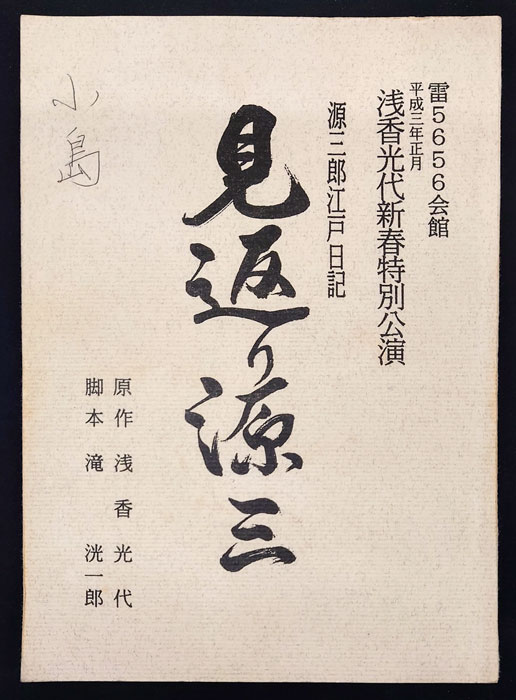 雷5656会館
平成三年正月
浅香光代新春特別公演
源三郎江戸日記
見返り源三
原作 浅香光代
脚本 滝洸一郎
小島